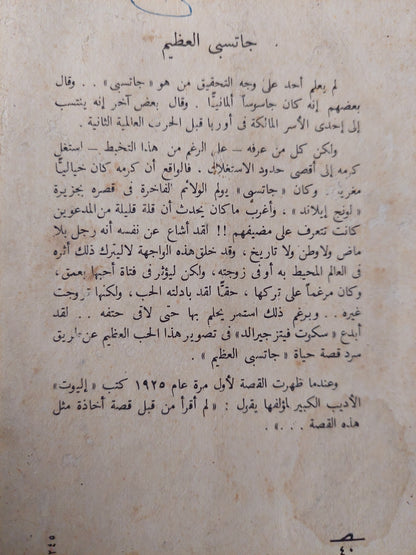 جاتسبى العظيم
لم يعلم أحد على وجه التحقيق من هو « جاتسبى » . . وقال
بعضهم إنه كان جاسوساً ألمانيًّا . وقال بعض آخر إنه ينتسب
إلى إحدى الأسر المالكة فى أوربا قبل الحرب العالمية الثانية .
ولكن كل من عرفه – على الرغم من هذا التخبط – استغل
كرمه إلى أقصى حدود الاستغلال . فالواقع أن كرمه كان خياليًّا
مغرياً . وكان « جاتسى » يولم الولائم الفاخرة فى قصره بجزيرة
« لونج إيلاند » ، وأغرب ما كان يحدث أن قلة قليلة من المدعوين
كانت تتعرف على مضيفهم !! لقد أشاع عن نفسه أنه رجل بلا
ماض ولا وطن ولا تاريخ ، وقد خلق هذه الواجهة لا ليترك ذلك أثره
فى العالم المحيط به أو فى زوجته ، ولكن ليؤثر فى فتاة أحبها بعمق ،
وكان مرغماً على تركها ، حقًّا لقد بادلته الحب ، ولكنها تزوجت
غيره . . وبرغم ذلك استمر يحلم بها حتى لاقى حتفه . . لقد
أبدع « سكوت فيتز جيرالد » فى تصوير هذا الحب العظيم عن طريق
سرد قصة حياة « جاتسبى العظيم » .
وعندما ظهرت القصة لأول مرة عام ١٩٢٥ كتب « إليوت »
الأديب الكبير لمؤلفها يقول : « لم أقرأ من قبل قصة أخاذة مثل
هذه القصة . . . » .
٤٠